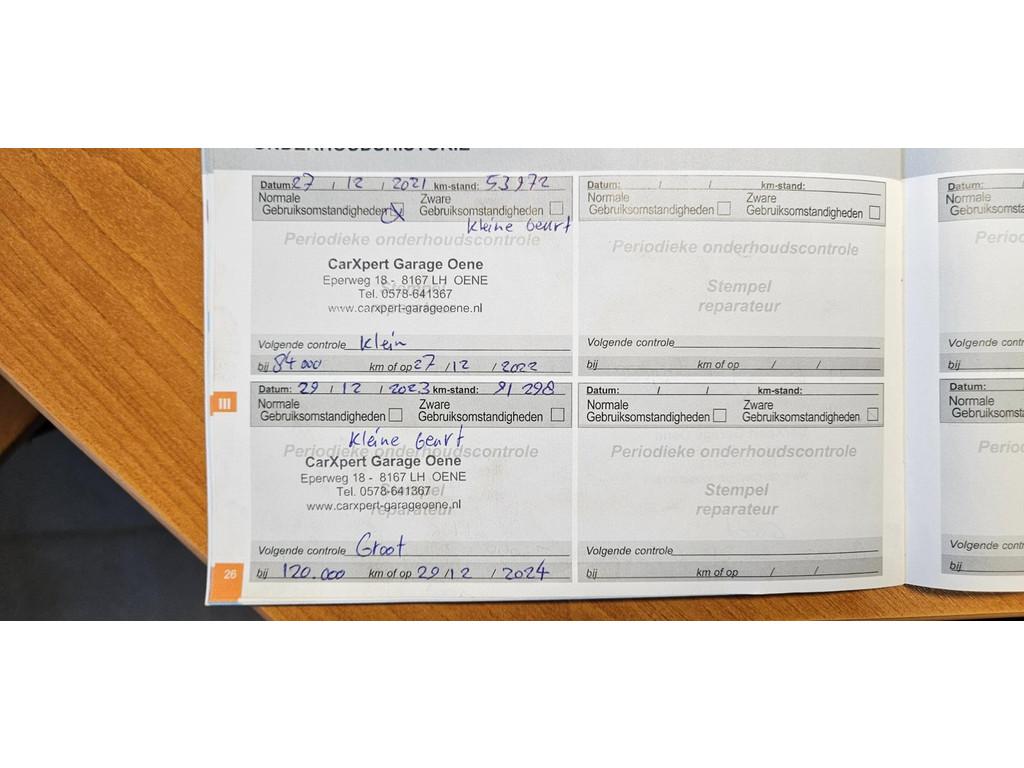 Datum: 27 / 12 / 2021 km-stand: 53972
Normale Gebruiksomstandigheden Zware Gebruiksomstandigheden
Kleine beurt
Periodieke onderhoudscontrole
CarXpert Garage Oene
Eperweg 18 - 8167 LH OENE
Tel. 0578-641367
www.carxpert-garageoene.nl
Volgende controle Klein
bij 84000 km of op 27 / 12 / 2022
Datum: / / km-stand:
Normale Gebruiksomstandigheden Zware Gebruiksomstandigheden
Periodieke onderhoudscontrole
Stempel
reparateur
Volgende controle
bij km of op / /
III
Datum: 29 / 12 / 2023 km-stand: 91 298
Normale Gebruiksomstandigheden Zware Gebruiksomstandigheden
Kleine beurt
Periodieke onderhoudscontrole
CarXpert Garage Oene
Eperweg 18 - 8167 LH OENE
Tel. 0578-641367
www.carxpert-garageoene.nl
Volgende controle Groot
bij 120.000 km of op 29 / 12 / 2024
Datum: / / km-stand:
Normale Gebruiksomstandigheden Zware Gebruiksomstandigheden
Periodieke onderhoudscontrole
Stempel
reparateur
Volgende controle
bij km of op / /
26
Datum:
Normale
bij
Datum:
Normale
bij